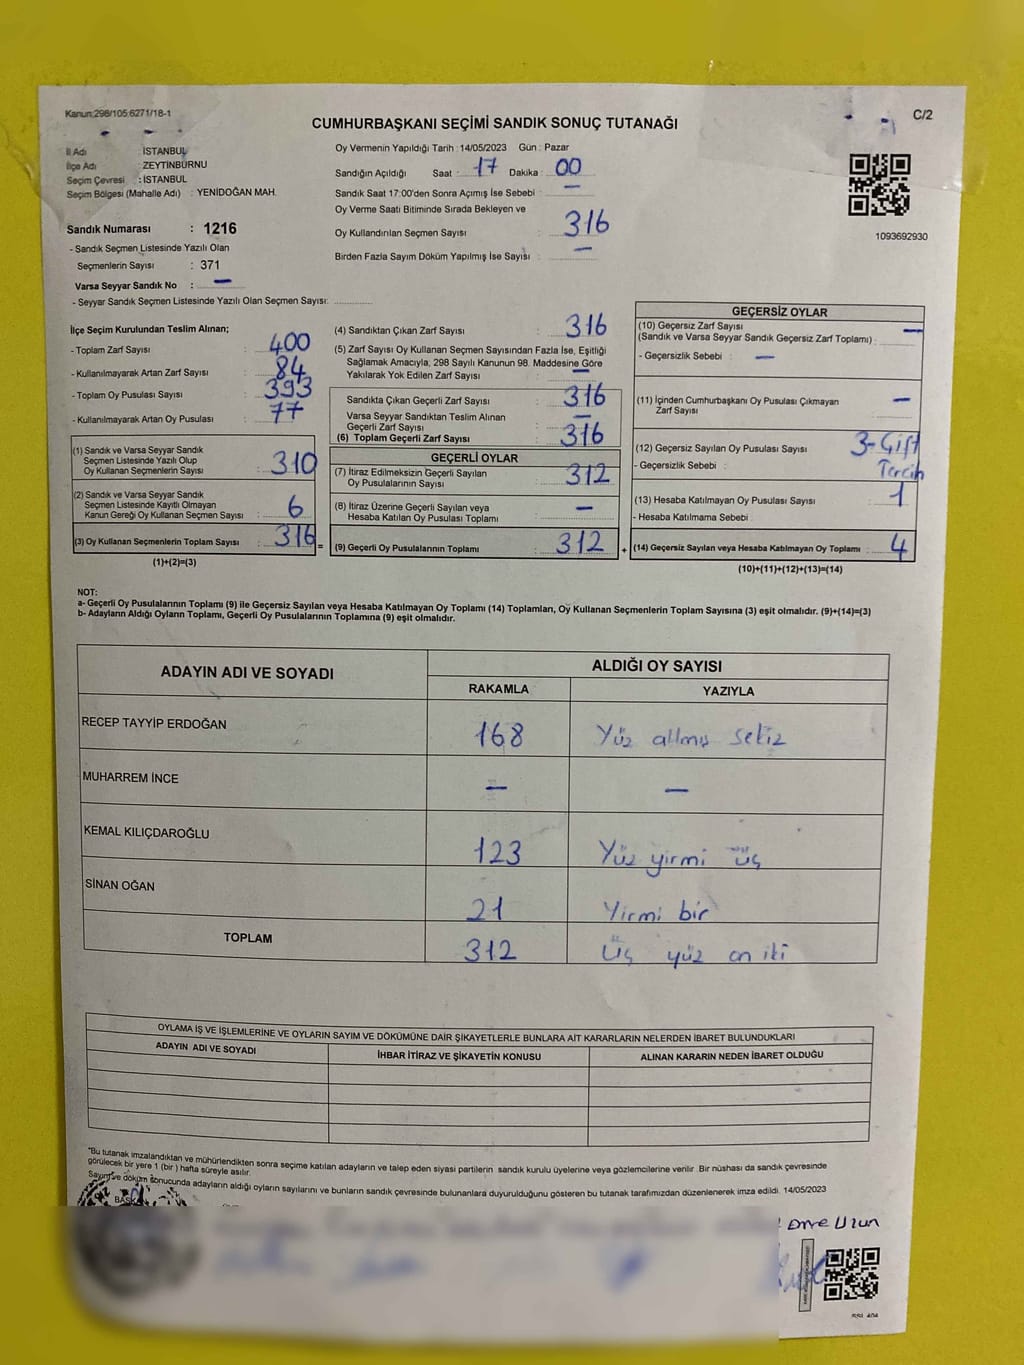 Kanun:298/105:6271/18-1
C/2
CUMHURBAŞKANI SEÇİMİ SANDIK SONUÇ TUTANAĞI
İl Adı : İSTANBUL
İlçe Adı : ZEYTİNBURNU
Seçim Çevresi : İSTANBUL
Seçim Bölgesi (Mahalle Adı) : YENİDOĞAN MAH.
Sandık Numarası : 1216
- Sandık Seçmen Listesinde Yazılı Olan
Seçmenlerin Sayısı : 371
Varsa Seyyar Sandık No : —
- Seyyar Sandık Seçmen Listesinde Yazılı Olan Seçmen Sayısı:
Oy Vermenin Yapıldığı Tarih : 14/05/2023 Gün : Pazar
Sandığın Açıldığı Saat : 17 Dakika : 00
Sandık Saat 17:00'den Sonra Açılmış İse Sebebi : —
Oy Verme Saati Bitiminde Sırada Bekleyen ve
Oy Kullandırılan Seçmen Sayısı : 316
Birden Fazla Sayım Döküm Yapılmış İse Sayısı : —
1093692930
İlçe Seçim Kurulundan Teslim Alınan;
- Toplam Zarf Sayısı : 400
- Kullanılmayarak Artan Zarf Sayısı : 84
- Toplam Oy Pusulası Sayısı : 393
- Kullanılmayarak Artan Oy Pusulası : 77
(1) Sandık ve Varsa Seyyar Sandık
Seçmen Listesinde Yazılı Olup
Oy Kullanan Seçmenlerin Sayısı : 310
(2) Sandık ve Varsa Seyyar Sandık
Seçmen Listesinde Kayıtlı Olmayan
Kanun Gereği Oy Kullanan Seçmen Sayısı : 6
(3) Oy Kullanan Seçmenlerin Toplam Sayısı : 316 =
(1)+(2)=(3)
(4) Sandıktan Çıkan Zarf Sayısı : 316
(5) Zarf Sayısı Oy Kullanan Seçmen Sayısından Fazla İse, Eşitliği
Sağlamak Amacıyla, 298 Sayılı Kanunun 98. Maddesine Göre
Yakılarak Yok Edilen Zarf Sayısı : —
Sandıkta Çıkan Geçerli Zarf Sayısı : 316
Varsa Seyyar Sandıktan Teslim Alınan
Geçerli Zarf Sayısı : —
(6) Toplam Geçerli Zarf Sayısı : 316
GEÇERLİ OYLAR
(7) İtiraz Edilmeksizin Geçerli Sayılan
Oy Pusulalarının Sayısı : 312
(8) İtiraz Üzerine Geçerli Sayılan veya
Hesaba Katılan Oy Pusulası Toplamı : —
(9) Geçerli Oy Pusulalarının Toplamı : 312 +
GEÇERSİZ OYLAR
(10) Geçersiz Zarf Sayısı
(Sandık ve Varsa Seyyar Sandık Geçersiz Zarf Toplamı) : —
- Geçersizlik Sebebi : —
(11) İçinden Cumhurbaşkanı Oy Pusulası Çıkmayan
Zarf Sayısı : —
(12) Geçersiz Sayılan Oy Pusulası Sayısı : 3-Çift
- Geçersizlik Sebebi : Tercih
(13) Hesaba Katılmayan Oy Pusulası Sayısı : 1
- Hesaba Katılmama Sebebi :
(14) Geçersiz Sayılan veya Hesaba Katılmayan Oy Toplamı : 4
(10)+(11)+(12)+(13)=(14)
NOT:
a- Geçerli Oy Pusulalarının Toplamı (9) ile Geçersiz Sayılan veya Hesaba Katılmayan Oy Toplamı (14) Toplamları, Oy Kullanan Seçmenlerin Toplam Sayısına (3) eşit olmalıdır. (9)+(14)=(3)
b- Adayların Aldığı Oyların Toplamı, Geçerli Oy Pusulalarının Toplamına (9) eşit olmalıdır.
ADAYIN ADI VE SOYADI
ALDIĞI OY SAYISI
RAKAMLA YAZIYLA
RECEP TAYYİP ERDOĞAN 168 Yüz altmış sekiz
MUHARREM İNCE — —
KEMAL KILIÇDAROĞLU 123 Yüz yirmi üç
SİNAN OĞAN 21 Yirmi bir
TOPLAM 312 Üç yüz on iki
OYLAMA İŞ VE İŞLEMLERİNE VE OYLARIN SAYIM VE DÖKÜMÜNE DAİR ŞİKAYETLERLE BUNLARA AİT KARARLARIN NELERDEN İBARET BULUNDUKLARI
ADAYIN ADI VE SOYADI İHBAR İTİRAZ VE ŞİKAYETİN KONUSU ALINAN KARARIN NEDEN İBARET OLDUĞU
"Bu tutanak imzalandıktan ve mühürlendikten sonra seçime katılan adayların ve talep eden siyasi partilerin sandık kurulu üyelerine veya gözlemcilerine verilir. Bir nüshası da sandık çevresinde
görülecek bir yere 1 (bir) hafta süreyle asılır.
Sayım ve döküm sonucunda adayların aldığı oyların sayılarını ve bunların sandık çevresinde bulunanlara duyurulduğunu gösteren bu tutanak tarafımızdan düzenlenerek imza edildi. 14/05/2023
BAŞKAN
Uzun